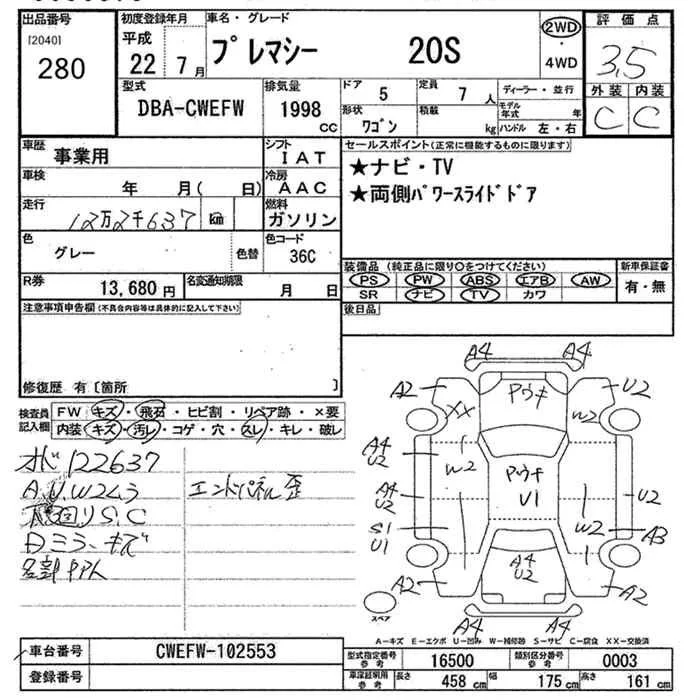 出品番号
[2040]
280
初度登録年月
平成
22 7月
車名・グレード
プレマシー 20S
2WD
・
4WD
評価点
3.5
外装 内装
C C
型式
DBA-CWEFW
排気量
1998 cc
ドア 5
定員 7 人
形状 ワゴン
積載 kg
ディーラー・並行
モデル年式 年
ハンドル 左・右
車歴 事業用
シフト IAT
車検 年 月( 日)
冷房 AAC
走行 12万2千637 km
燃料 ガソリン
色 グレー 色替
色コード 36C
R券 13,680円
名変通知期限 月 日
セールスポイント(正常に機能するものに限ります)
★ナビ・TV
★両側パワースライドドア
装備品 (純正品に限り○をつけてください)
PS PW ABS エアB AW
SR ナビ TV カワ
新車保証書
有・無
後日品
注意事項申告欄(不具合内容等は具体的に記入して下さい)
修復歴 有〔箇所 〕
検査員記入欄
FW キズ・飛石・ヒビ割・リペア跡・×要
内装 キズ・汚レ・コゲ・穴・スレ・キレ・破レ
オド122637
A.U.W2くう
リS.C
Dミラーキズ
エンドパネル歪
A4 A4
A2 アウキ U2
XX W2
A4 U2
W2
アウキ U1
A4 U2
U2
S1 U1
W2 A3
A4 U2
A2 A2
A4 A4
スペア
A−キズ E−エクボ U−凹み W−補修跡 S−サビ C−腐食 XX−交換済
車台番号 CWEFW-102553
登録番号
型式指定番号 参考 16500
類別区分番号 参考 0003
車庫証明用 参考 長さ 458 cm 幅 175 cm 高さ 161 cm